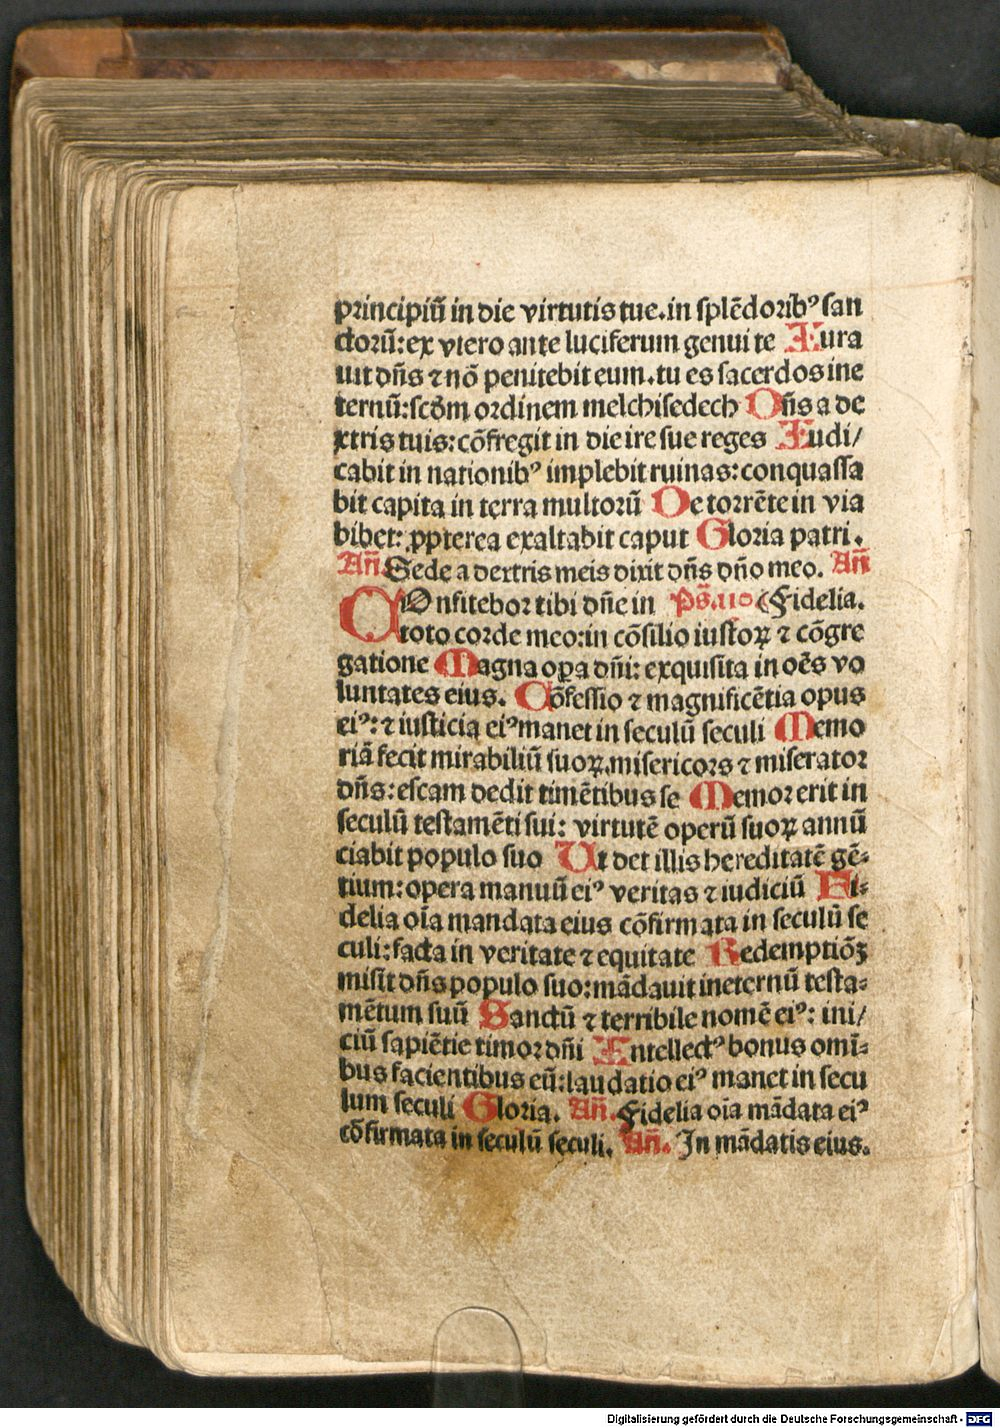 principiū in die virtutis tue. in splēdoribꝰ san
ctorū: ex vtero ante luciferum genui te Iura
uit dn̄s ⁊ nō penitebit eum. tu es sacerdos in e
ternū: scd̄m ordinem melchisedech Dn̄s a de
xtris tuis: cōfregit in die ire sue reges Iudi/
cabit in nationibꝰ implebit ruinas: conquassa
bit capita in terra multorū De torrēte in via
bibet: ꝓpterea exaltabit caput Gloria patri.
An̄. Sede a dextris meis dixit dn̄s dn̄o meo. An̄
COnfitebor tibi dn̄e in Ps̄. 110 (Fidelia.
toto corde meo: in cōsilio iustoꝝ ⁊ cōgre
gatione Magna oꝑa dn̄i: exquisita in oēs vo
luntates eius. Cōfessio ⁊ magnificētia opus
eiꝰ: ⁊ iusticia eiꝰ manet in seculū seculi Memo
riā fecit mirabiliū suoꝝ. misericors ⁊ miserator
dn̄s: escam dedit timētibus se Memor erit in
seculū testamēti sui: virtutē operū suoꝝ annū
ciabit populo suo Ut det illis hereditatē gē-
tium: opera manuū eiꝰ veritas ⁊ iudiciū Fi-
delia oīa mandata eius cōfirmata in seculū se
culi: facta in veritate ⁊ equitate Redemptiōꝫ
misit dn̄s populo suo: mādauit in eternū testa-
mētum suū Sanctū ⁊ terribile nomē eiꝰ: ini/
ciū sapiētie timor dn̄i Intellectꝰ bonus omī-
bus facientibus eū: laudatio eiꝰ manet in secu
lum seculi Gloria. An̄. Fidelia oīa mādata eiꝰ
cōfirmata in seculū seculi. An̄. In mādatis eius.
Digitalisierung gefördert durch die Deutsche Forschungsgemeinschaft - DFG